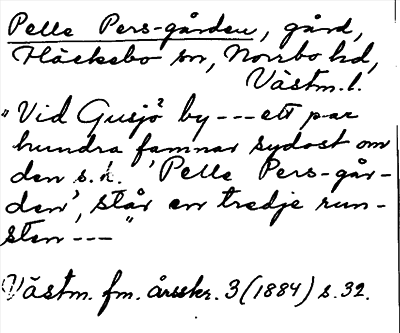 Pelle Pers-gården, gård,
Häckebo sn, Norrbo hd,
Västm. l.
"Vid Gusjö² by --- ett par
hundra famnar sydost om
den s.k. 'Pelle Pers-går-
den', står en tredje run-
sten ---"
Västm. fm. årsskr. 3 (1884) s. 32.